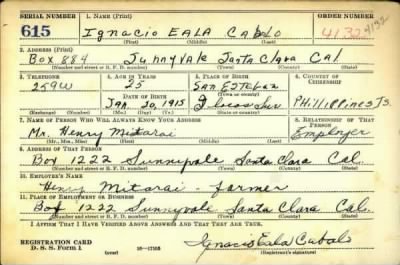 SERIAL NUMBER 1. NAME (Print) ORDER NUMBER
615 Ignacio EALA Cablo 4132 4132
(First) (Middle) (Last)
2. ADDRESS (Print)
Box 884 Sunnyvale Santa Clara Cal
(Number and street or R. F. D. number) (Town) (County) (State)
3. TELEPHONE 4. AGE IN YEARS 5. PLACE OF BIRTH 6. COUNTRY OF CITIZENSHIP
259W 25 SAN ESTEBAN
DATE OF BIRTH (Town or county)
JAN. 20, 1915 Ilocos Sur PHilippines Is.
(Exchange) (Number) (Mo.) (Day) (Yr.) (State or country)
7. NAME OF PERSON WHO WILL ALWAYS KNOW YOUR ADDRESS 8. RELATIONSHIP OF THAT PERSON
Mr. Henry Mitarai Employer
(Mr., Mrs., Miss) (First) (Middle) (Last)
9. ADDRESS OF THAT PERSON
Box 1222 Sunnyvale Santa Clara Cal.
(Number and street or R. F. D. number) (Town) (County) (State)
10. EMPLOYER'S NAME
Henry Mitarai - farmer
11. PLACE OF EMPLOYMENT OR BUSINESS
Box 1222 Sunnyvale Santa Clara Cal.
(Number and street or R. F. D. number) (Town) (County) (State)
I AFFIRM THAT I HAVE VERIFIED ABOVE ANSWERS AND THAT THEY ARE TRUE.
REGISTRATION CARD
D. S. S. Form 1 (over) 16-17105 Ignacio Eala Cabalo
(Registrant's signature)